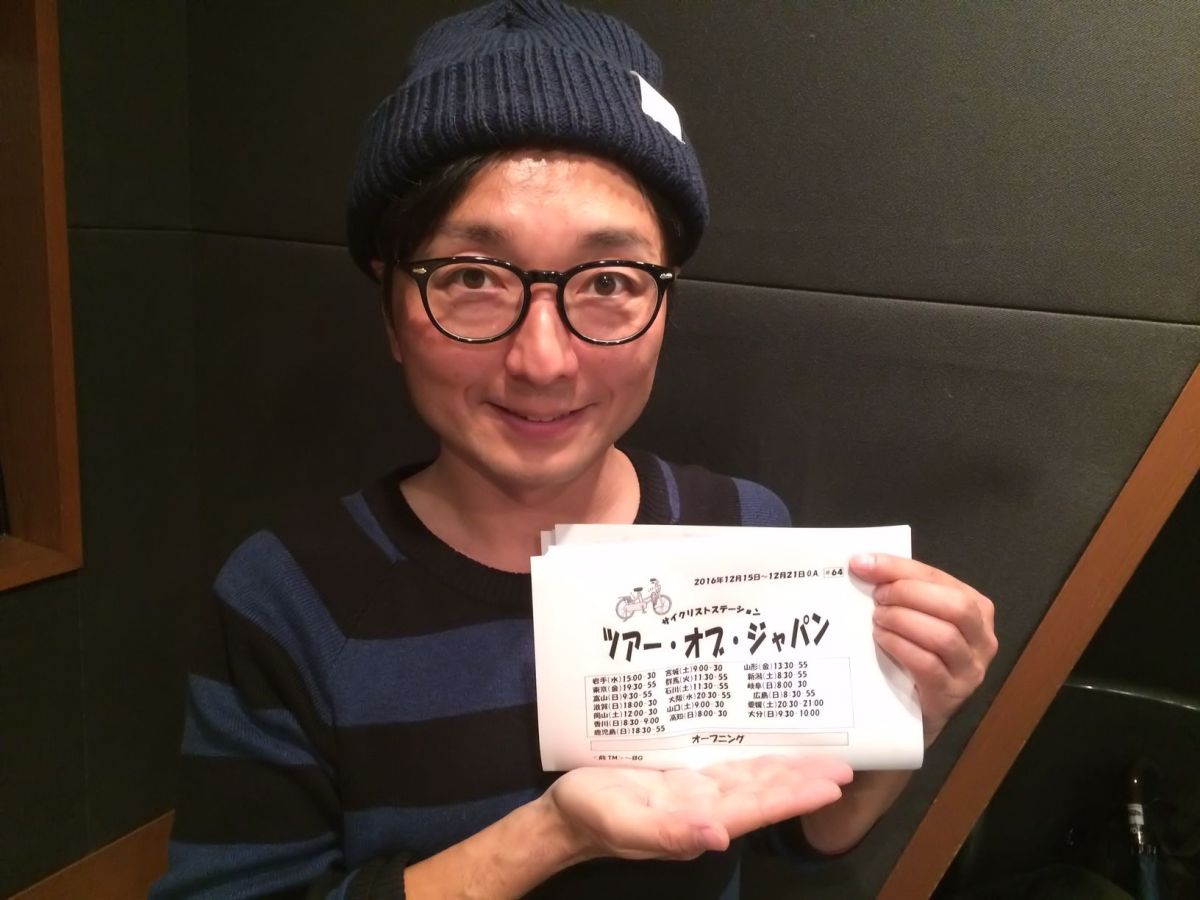 2016年12月15日～12月21日OA #64
サイクリストステーション
ツアー・オブ・ジャパン
岩手(水)15:00-30 宮城(土)9:00-30 山形(金)13:30-55
東京(金)19:30-55 群馬(火)11:30-55 新潟(土)8:30-55
富山(日)9:30-55 石川(土)11:30-55 岐阜(日)8:00-30
滋賀(日)18:00-30 大阪(水)20:30-55 広島(日)8:30-55
岡山(土)12:00-30 山口(土)9:00-30 愛媛(土)20:30-21:00
香川(日)8:30-9:00 高知(日)8:00-30 大分(日)9:30-10:00
鹿児島(日)18:30-55
オープニング